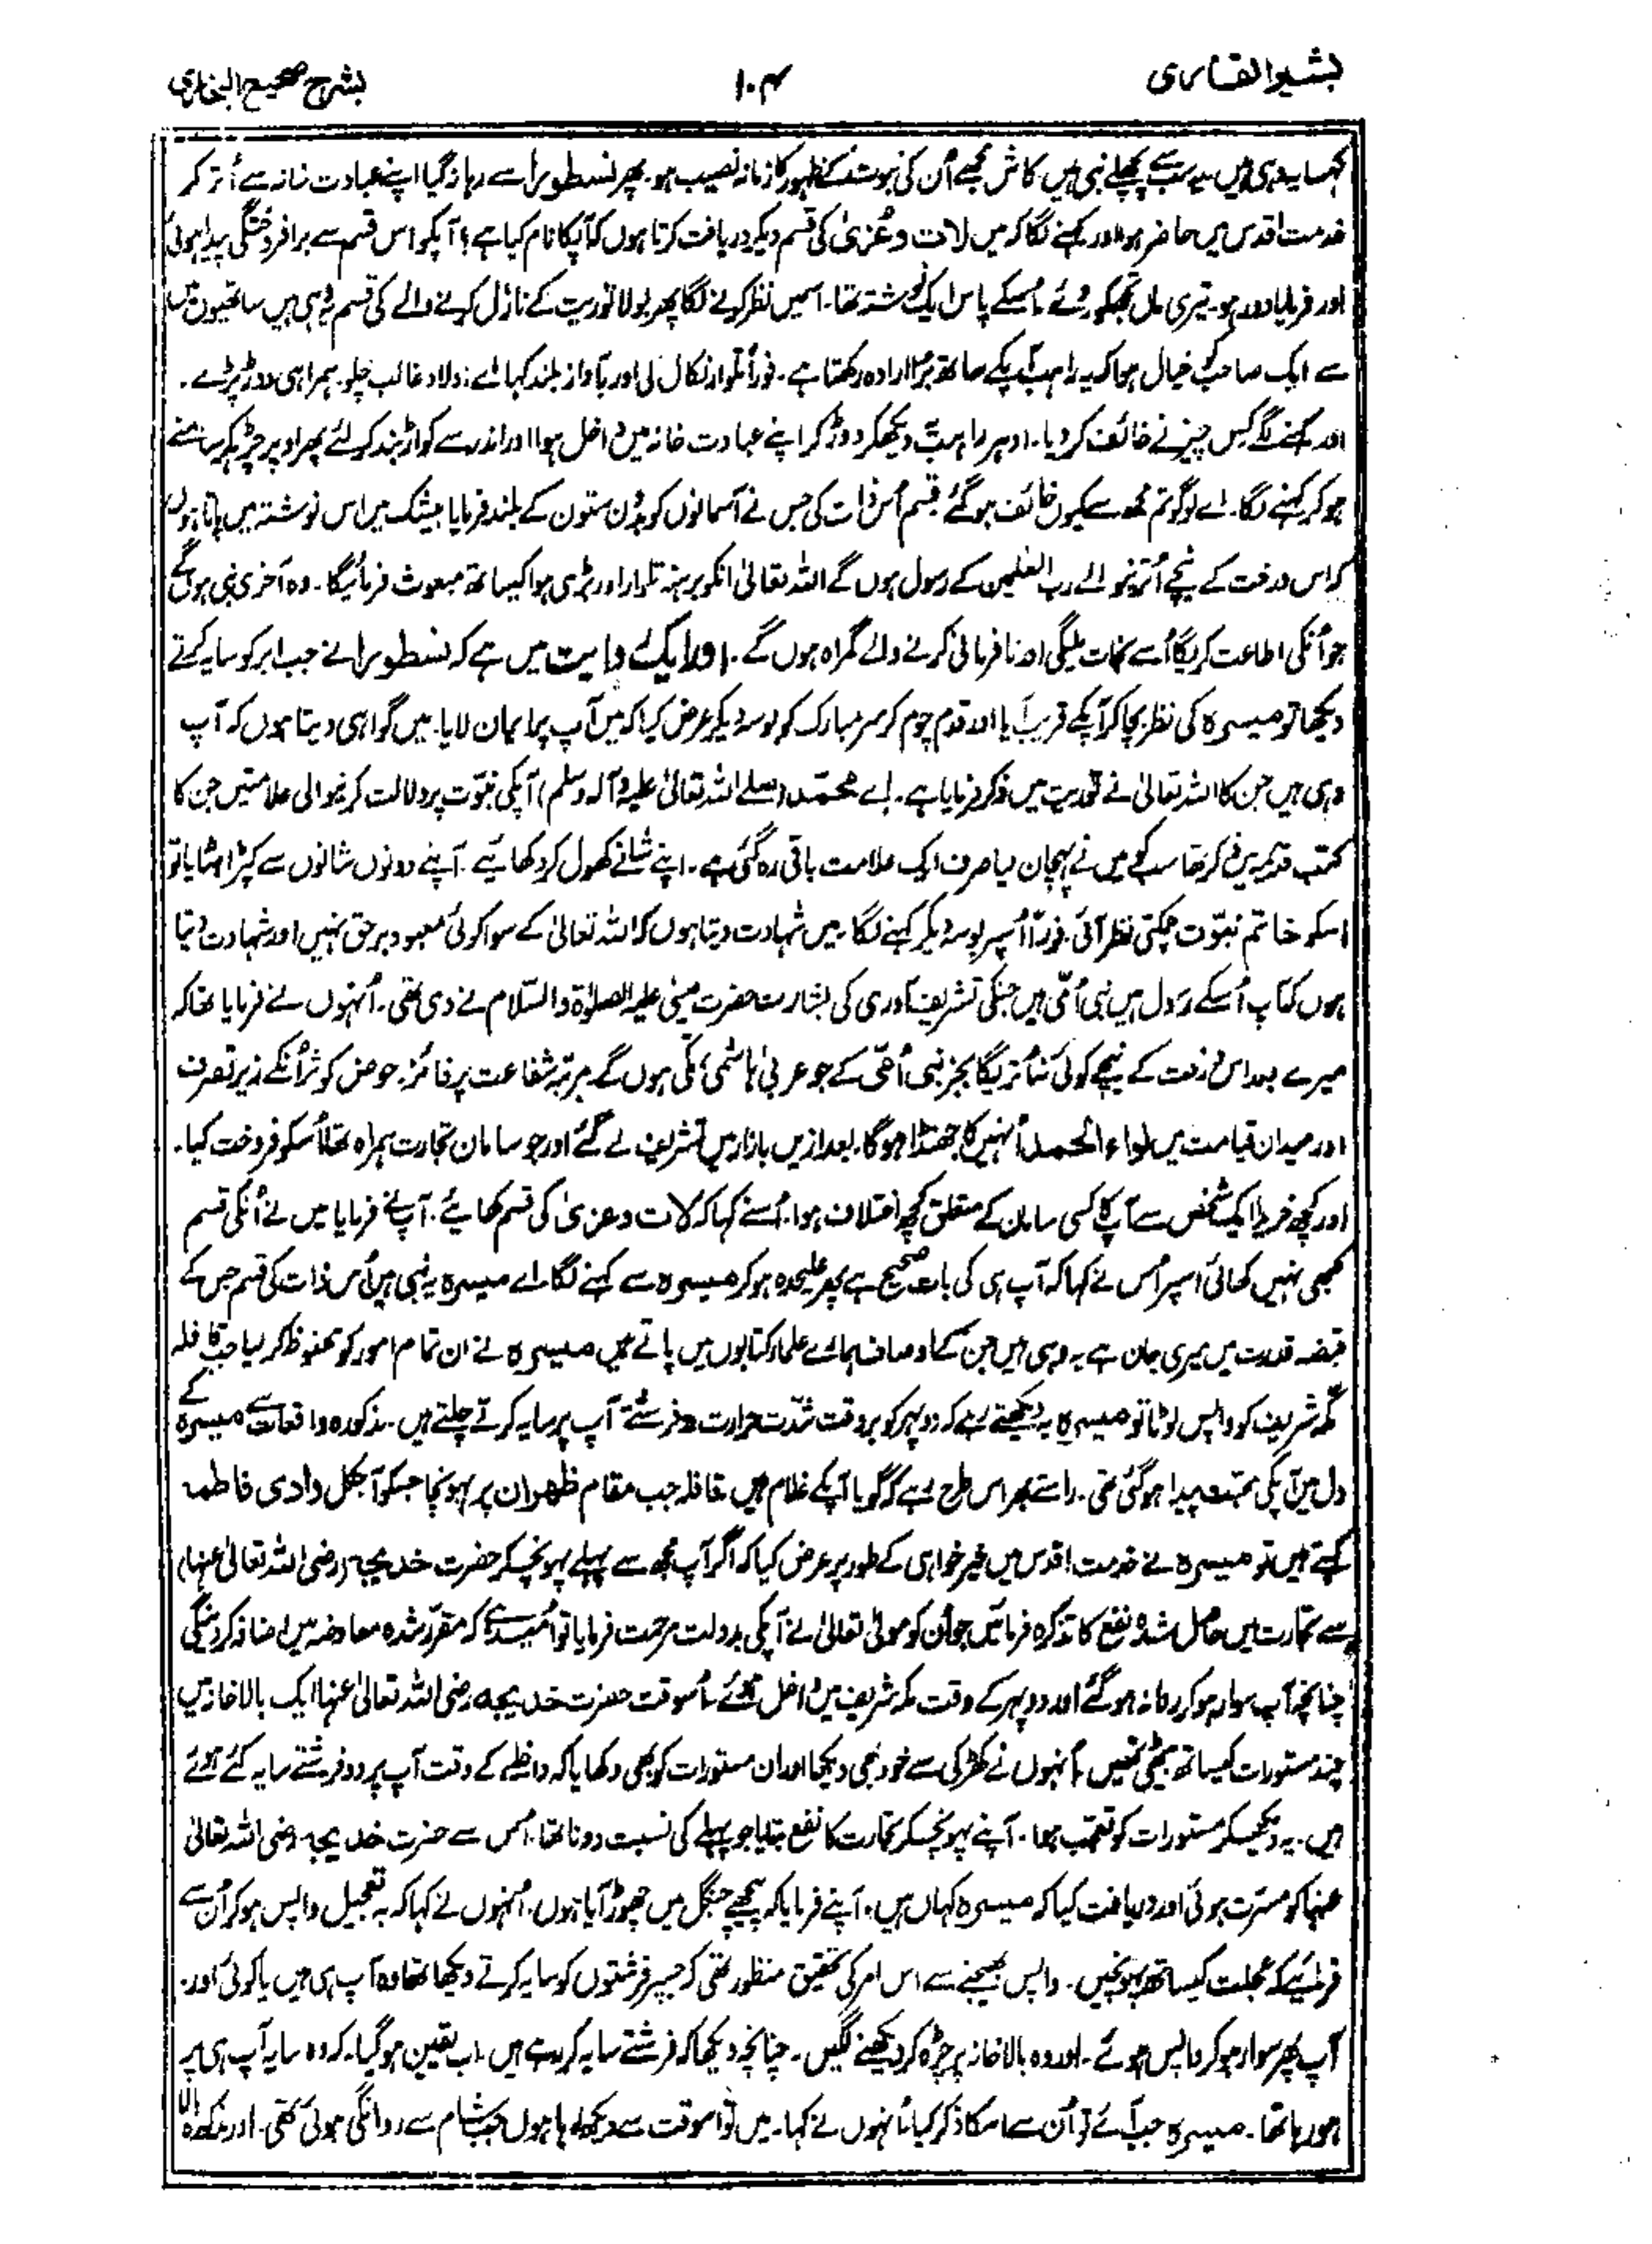 بشیر القاری
۱۰۴
بشرح صحیح البخاری
کہا یہ وہی ہیں یہ سب سے پچھلے نبی ہیں کاش مجھے اُن کی نبوت کے ظہور کا زمانہ نصیب ہو۔ پھر نسطورا سے رہا نہ گیا اپنے عبادت خانہ سے اُتر کر
خدمت اقدس میں حاضر ہوا اور کہنے لگا کہ میں لات و عُزیٰ کی قسم دیکر دریافت کرتا ہوں کہ آپکا نام کیا ہے؟ آپکو اس قسم سے برافروختگی پیدا ہوئی
اور فرمایا دور ہو۔ تیری ماں تجھکو روئے اُسکے پاس ایک نوشتہ تھا۔ اسمیں نظر کرنے لگا پھر بولا توریت کے نازل کرنے والے کی قسم یہ وہی ہیں ساتھیوں میں
سے ایک صاحب کو خیال ہوا کہ یہ راہب آپکے ساتھ بُرا ارادہ رکھتا ہے۔ فوراً تلوار نکال لی اور بآواز بلند کہا اے اولاد غالب چلو۔ ہمراہی دوڑ پڑے۔
اور کہنے لگے کس چیز نے خائف کر دیا۔ ادہر راہب یہ دیکھکر دوڑ کر اپنے عبادت خانہ میں داخل ہوا اور اندر سے کواڑ بند کر لئے پھر اوپر چڑہکر سامنے
ہو کر کہنے لگا۔ اے لوگو تم مجھ سے کیوں خائف ہو گئے قسم اُس ذات کی جس نے آسمانوں کو بدُن ستون کے بلند فرمایا بیشک میں اس نوشتہ میں پاتا ہوں
کہ اس درخت کے نیچے اُترنیوالے رب العٰلمین کے رسول ہوں گے اللہ تعالیٰ انکو برہنہ تلوار اور بڑی ہوا کیساتھ مبعوث فرمائیگا۔ وہ آخری نبی ہوں گے
جو اُنکی اطاعت کریگا اُسے نجات ملیگی اور نافرمانی کرنے والے گمراہ ہوں گے۔ اور ایک روایت میں ہے کہ نسطورا نے جب ابر کو سایہ کرتے
دیکھا تو میسرہ کی نظر بچا کر آپکے قریب آیا اور قدم چوم کر سر مبارک کو بوسہ دیکر عرض کیا کہ میں آپ پر ایمان لایا۔ میں گواہی دیتا ہوں کہ آپ
وہی ہیں جن کا اللہ تعالیٰ نے توریت میں ذکر فرمایا ہے۔ اے محمّد (صلے اللہ تعالیٰ علیہ وآلہ وسلم) آپکی نبوّت پر دلالت کرنیوالی علامتیں جن کا
کتب قدیمہ میں ذکر تھا سب کو میں نے پہچان لیا صرف ایک علامت باقی رہ گئی ہے۔ اپنے شانے کھول کر دکھائیے۔ آپنے دونوں شانوں سے کپڑا ہٹایا تو
اسکو خاتم نبوّت چمکتی نظر آئی۔ فوراً اُسپر بوسہ دیکر کہنے لگا۔ میں شہادت دیتا ہوں کہ اللہ تعالیٰ کے سوا کوئی معبود برحق نہیں اور شہادت دیتا
ہوں کہ آپ اُسکے رسول ہیں نبی اُمّی ہیں جنکی تشریف آوری کی بشارت حضرت عیسیٰ علیہ الصلوٰۃ والسّلام نے دی تھی۔ اُنہوں نے فرمایا تھا کہ
میرے بعد اس درخت کے نیچے کوئی نہ اُتریگا بجز نبی اُمّی کے جو عربی ہاشمی مکی ہوں گے۔ مرتبہ شفاعت پر فائز۔ حوض کوثر اُنکے زیر تصرف
اور میدان قیامت میں لواء الحمد اُنہیں کا جھنڈا ہوگا۔ بعد ازیں بازار میں تشریف لے گئے اور جو سامان تجارت ہمراہ تھا اُسکو فروخت کیا۔
اور کچھ خریدا ایک شخص سے آپ کا کسی سامان کے متعلق کچھ اختلاف ہوا۔ اُسنے کہا کہ لات و عزیٰ کی قسم کھائیے۔ آپنے فرمایا میں نے اُنکی قسم
کبھی نہیں کھائی اسپر اُس نے کہا کہ آپ ہی کی بات صحیح ہے پھر علیحدہ ہو کر میسرہ سے کہنے لگا۔ اے میسرہ یہ نبی ہیں اُس ذات کی قسم جس کے
قبضہ قدرت میں میری جان ہے یہ وہی ہیں جن کے اوصاف ہمارے علماء کتابوں میں پاتے ہیں میسرہ نے ان تمام امور کو محفوظ کر لیا جب قافلہ
مکہ شریف کو واپس لوٹا تو میسرہ یہ دیکھتے رہے کہ دوپہر کو بروقت شدّت حرارت دو فرشتے آپ پر سایہ کرتے چلتے ہیں۔ مذکورہ واقعات سے میسرہ کے
دل میں آپکی محبت پیدا ہو گئی تھی۔ راستے بھر اس طرح رہے کہ گویا آپکے غلام ہیں۔ قافلہ جب مقام ظہران پر پہونچا جسکو آجکل وادی فاطمہ
کہتے ہیں تو میسرہ نے خدمت اقدس میں خیر خواہی کے طور پر عرض کیا کہ اگر آپ مجھ سے پہلے پہونچکر حضرت خدیجہ (رضی اللہ تعالیٰ عنہا)
سے تجارت میں حاصل شدہ نفع کا تذکرہ فرمائیں جو اُن کو مولیٰ تعالیٰ نے آپکی بدولت مرحمت فرمایا تو اُمید ہے کہ مقرّر شدہ معاوضہ میں اضافہ کر دینگی
چنانچہ آپ سوار ہو کر روانہ ہو گئے اور دوپہر کے وقت مکہ شریف میں داخل ہوئے۔ اُسوقت حضرت خدیجہ رضی اللہ تعالیٰ عنہا ایک بالاخانہ میں
چند مستورات کیساتھ بیٹھی تھیں اُنہوں نے کھڑکی سے خود بھی دیکھا اور ان مستورات کو بھی دکھایا کہ داخلے کے وقت آپ پر دو فرشتے سایہ کئے ہوئے
ہیں۔ یہ دیکھکر مستورات کو تعجب ہوا۔ آپنے پہونچکر تجارت کا نفع بتلایا جو پہلے کی نسبت دونا تھا۔ اس سے حضرت خدیجہ رضی اللہ تعالیٰ
عنہا کو مسّرت ہوئی اور دریافت کیا کہ میسرہ کہاں ہیں۔ آپنے فرمایا کہ پیچھے جنگل میں چھوڑ آیا ہوں۔ اُنہوں نے کہا کہ بہ تعجیل واپس ہو کر اُن سے
فرمائیے کہ عجلت کیساتھ پہونچیں۔ واپس بھیجنے سے اس امر کی تحقیق منظور تھی کہ جسپر فرشتوں کو سایہ کرتے دیکھا تھا وہ آپ ہی ہیں یا کوئی اور۔
آپ پھر سوار ہو کر واپس ہوئے۔ اور وہ بالاخانہ پر چڑہ کر دیکھنے لگیں۔ چنانچہ دیکھا کہ فرشتے سایہ کر رہے ہیں۔ اب یقین ہو گیا۔ کہ وہ سایہ آپ ہی پر
ہو رہا تھا۔ میسرہ جب آئے تو اُن سے اسکا ذکر کیا اُنہوں نے کہا۔ میں تو اُسوقت سے دیکھ رہا ہوں جب شام سے روانگی ہوئی تھی۔ اور مذکورہ بالا